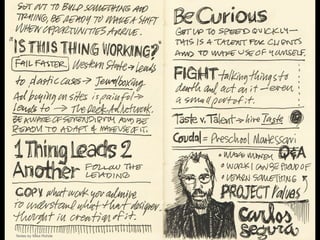 SET OUT TO BUILD SOMETHING AND
TRAINING, BE READY TO MAKE A SHIFT
WHEN OPPORTUNITIES ARRIVE.
"IS THIS THING WORKING?"
FAIL FASTER. Western State → Leads
to plastic cases → Jewelboxing
Ad buying on sites is painful →
Leads to → The Deck Ad Network.
BE AWARE OF SERENDIPITY AND BE
READY TO ADAPT & MAKE USE OF IT.
1 Thing Leads 2
Another FOLLOW THE
LEADING
COPY what work you admire
to understand what that designer
thought in creation of it.
Be Curious
GET UP TO SPEED QUICKLY—
THIS IS A TALENT FOR CLIENTS
AND TO MAKE USE OF YOURSELF.
FIGHT talking things to
death and act on it - even
a small part of it.
Taste v. Talent → hire Taste
Coudal = Preschool Montessori
Q&A
• MAKE MONEY
• WORK I CAN BE PROUD OF
• LEARN SOMETHING
PROJECT Values
Carlos
Segura
Notes by Mike Rohde